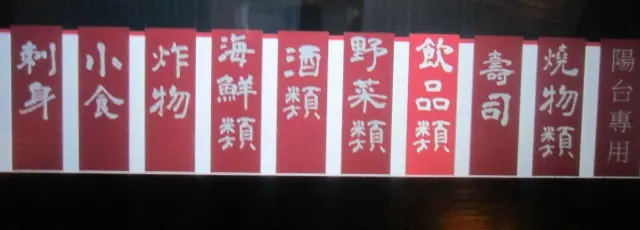 刺身
小食
炸物
海鮮類
酒類
野菜類
飲品類
壽司
燒物類
陽台專用